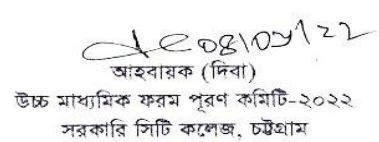 08/09/22
আহবায়ক (দিবা)
উচ্চ মাধ্যমিক ফরম পূরণ কমিটি-২০২২
সরকারি সিটি কলেজ, চট্টগ্রাম